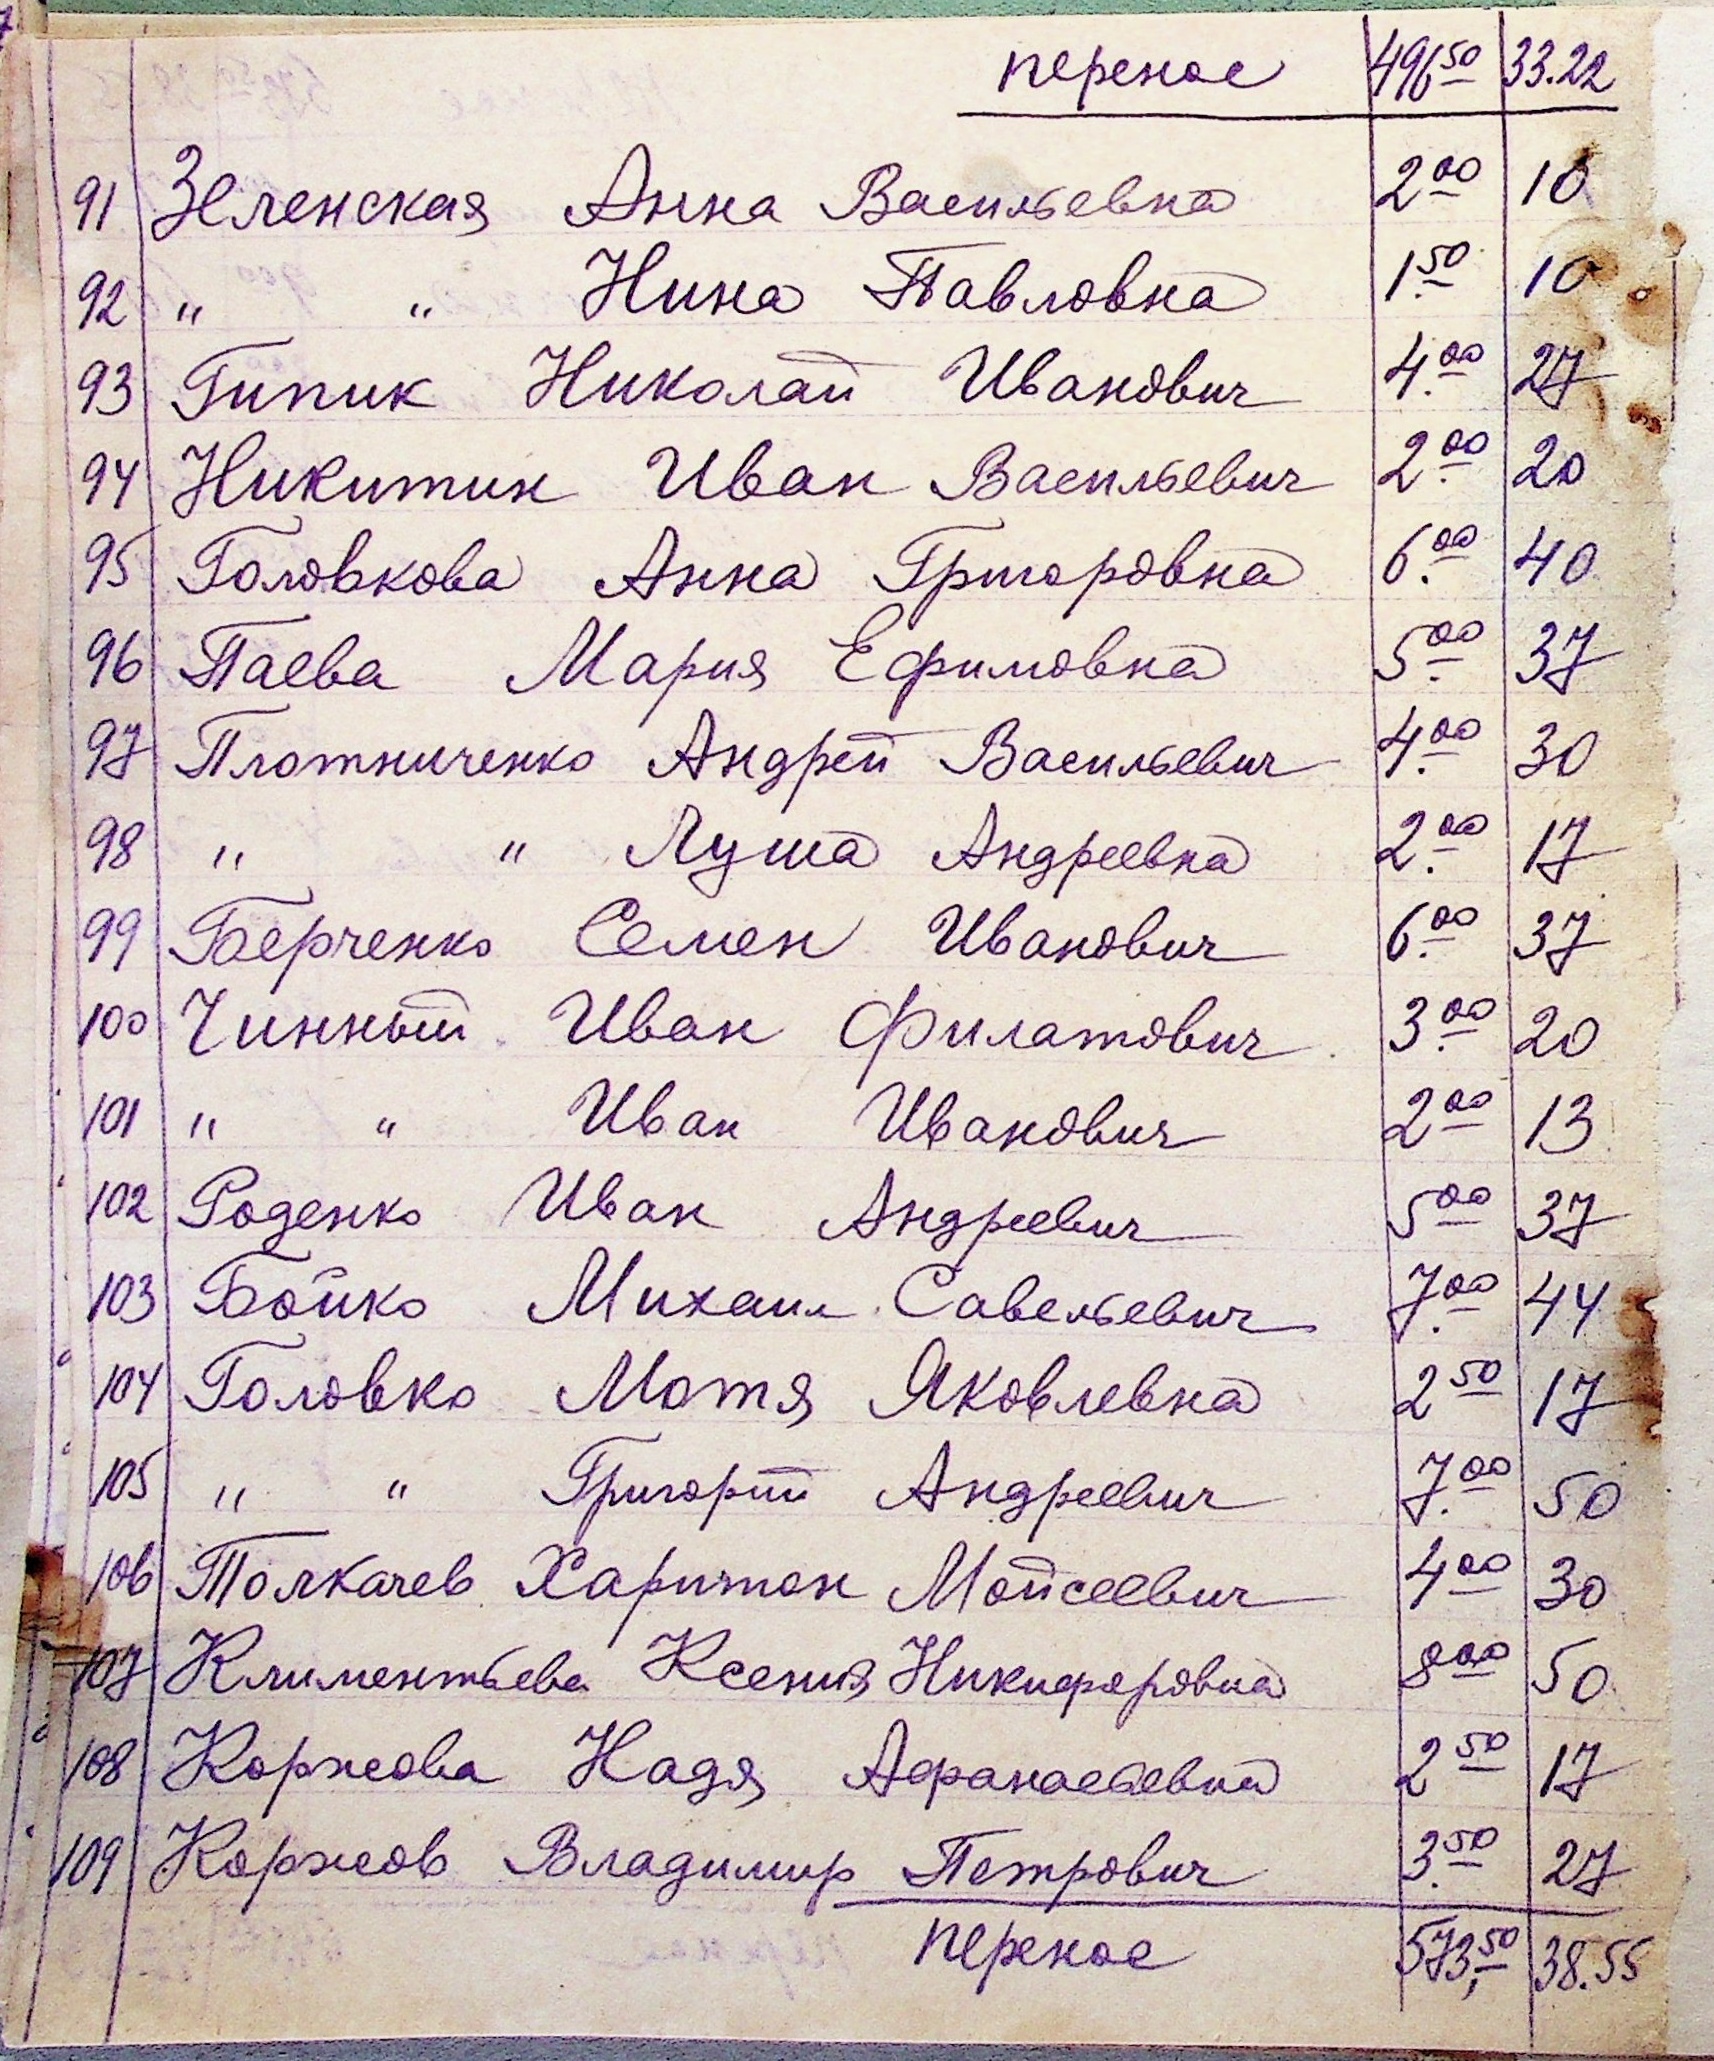 перенос 496.50 33.22
91 Зеленская Анна Васильевна 2.00 10
92 " " Нина Павловна 1.50 10
93 Гипик Николай Иванович 4.00 27
94 Никитин Иван Васильевич 2.00 20
95 Головкова Анна Григоровна 6.00 40
96 Паева Мария Ефимовна 5.00 37
97 Плотниченко Андрей Васильевич 4.00 30
98 " " Луша Андреевна 2.00 17
99 Берченко Семен Иванович 6.00 37
100 Чинный Иван Филатович 3.00 20
101 " " Иван Иванович 2.00 13
102 Роденко Иван Андреевич 5.00 37
103 Бойко Михаил Савельевич 7.00 44
104 Головко Мотя Яковлевна 2.50 17
105 " " Григорий Андреевич 7.00 50
106 Толкачев Харитон Мойсеевич 4.00 30
107 Климентьева Ксения Никифоровна 8.00 50
108 Коржова Надя Афанасьевна 2.50 17
109 Коржов Владимир Петрович 3.50 27
перенос 573,50 38.55